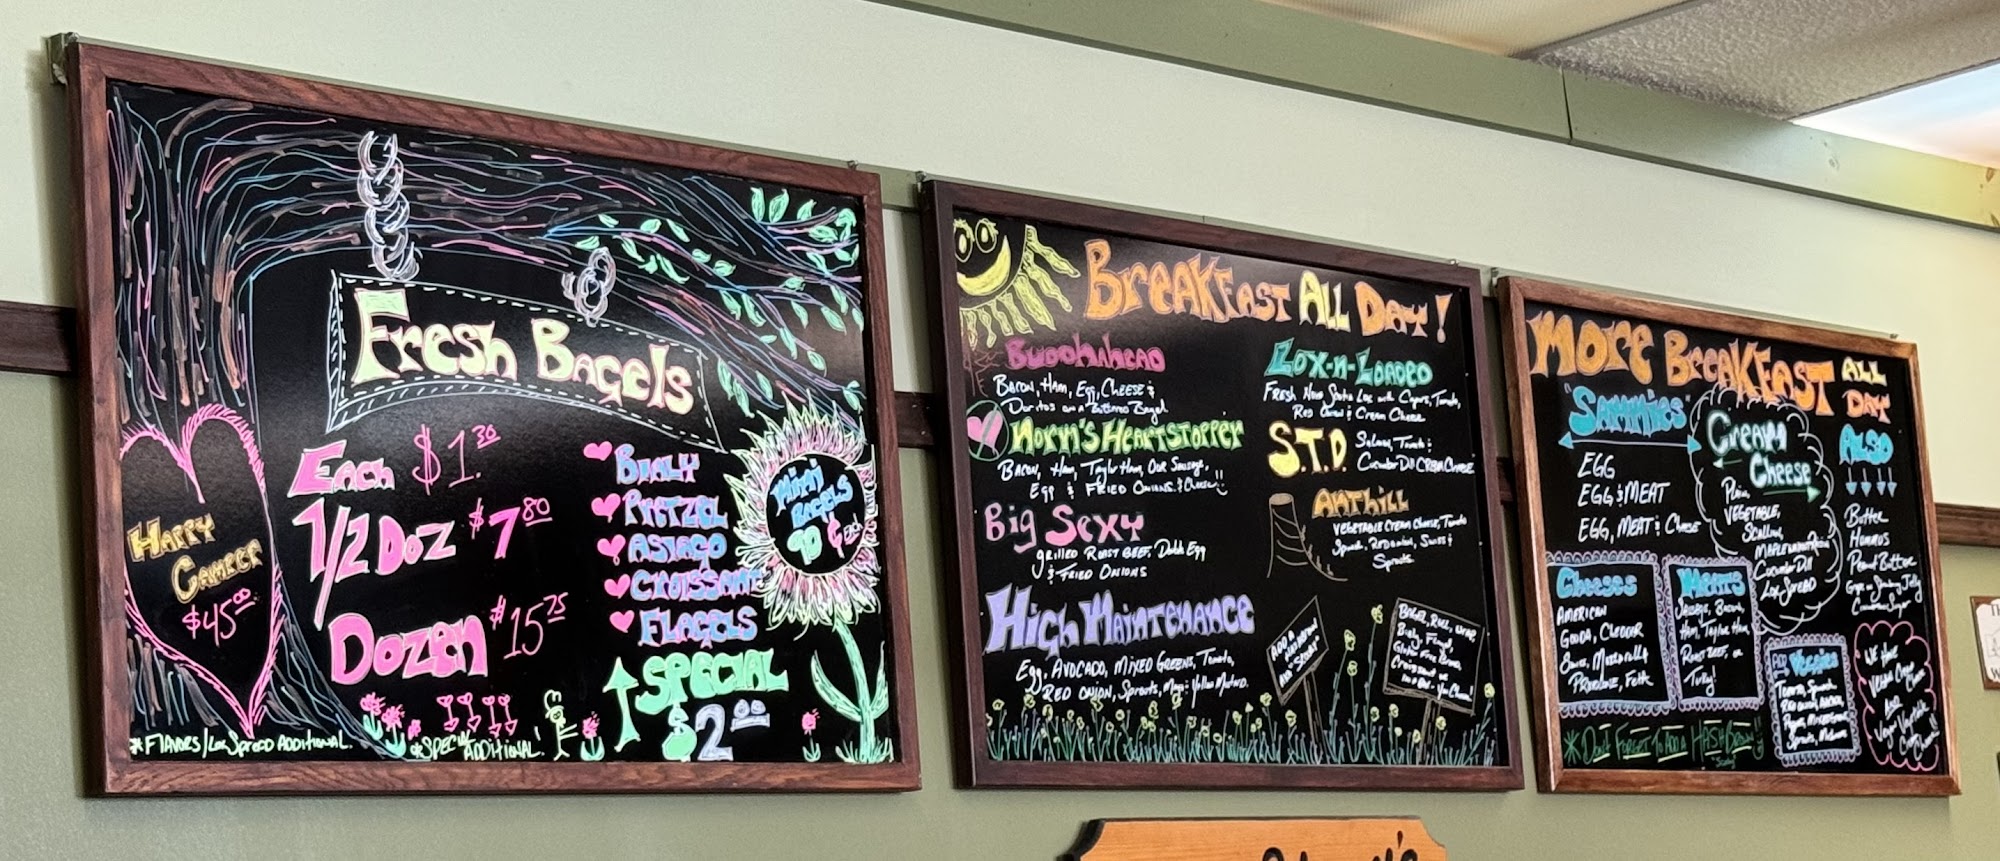 Fresh Bagels
Each $1.30
1/2 Doz $7.80
Dozen $15.75
Happy
Camper
$45.00
♥ Bialy
♥ Pretzel
♥ Asiago
♥ Croissant
♥ Flagels
↑ Special
2.00
Mini
Bagels
90¢ Each
*Flavors/Lox Spread Additional.
*Special Additional!
Breakfast All Day!
Buddhahead
Bacon, Ham, Egg, Cheese &
Doritos on a Buttered Bagel
Norm's Heartstopper
Bacon, Ham, Taylor Ham, Our Sausage,
Egg & Fried Onions & Cheese!!
Big Sexy
Grilled Roast Beef, Double Egg
& Fried Onions
High Maintenance
Egg, Avocado, Mixed Greens, Tomato,
Red Onion, Sprouts, Mayo & Yellow Mustard.
Lox-n-Loaded
Fresh Nova Scotia Lox with Capers, Tomato,
Red Onion & Cream Cheese
S.T.D.
Salami, Tomato &
Cucumber Dill Cream Cheese
Anthill
Vegetable Cream Cheese, Tomato
Spinach, Red Onion, Swiss &
Sprouts
Add a
Hash Brown
"Scooby"
Bagel, Roll, Wrap,
Bialy, Flagel,
Gluten Free Bread,
Croissant or
You Choose!
More Breakfast All
Day
"Sammies"
Egg
Egg & Meat
Egg, Meat & Cheese
Cream
Cheese
Plain,
Vegetable,
Scallion,
Maple Walnut Raisin
Cucumber Dill
Lox Spread
Also
Butter
Hummus
Peanut Butter
Grape or Strawberry Jelly
Cinnamon Sugar
Cheeses
American
Gouda, Cheddar
Swiss, Mozzarella
Provolone, Feta
Meats
Sausage, Bacon,
Ham, Taylor Ham,
Roast Beef, or
Turkey!
Add Veggies
Tomato, Spinach,
Red Onion,
Pepper,
Sprouts,
We Have
Vegan Cream Cheese
And
Vegan Vegetable
Cream Cheese!!
*Don't Forget To Add a Hash Brown
"Scooby"